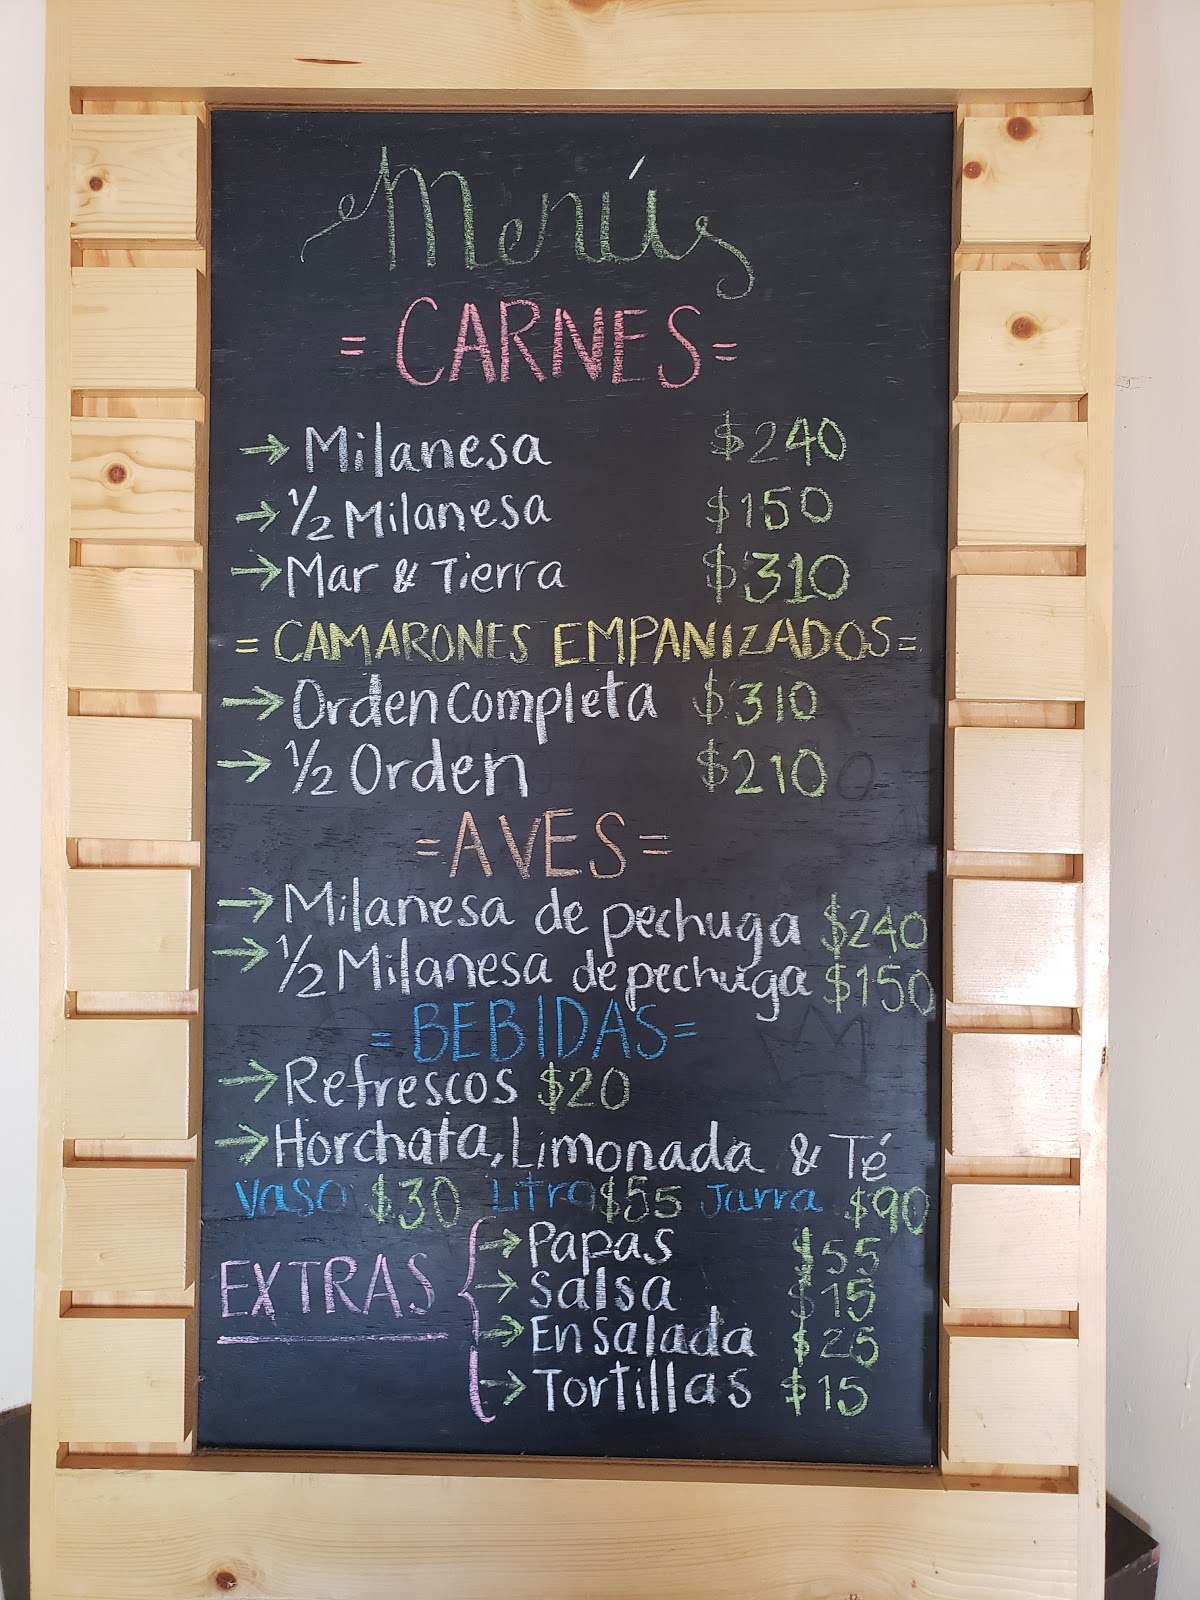 Menús
= CARNES =
→ Milanesa $240
→ 1/2 Milanesa $150
→ Mar & Tierra $310
= CAMARONES EMPANIZADOS =
→ Orden completa $310
→ 1/2 Orden $210
= AVES =
→ Milanesa de pechuga $240
→ 1/2 Milanesa de pechuga $150
= BEBIDAS =
→ Refrescos $20
→ Horchata, Limonada & Té
Vaso $30 Litro $55 Jarra $90
EXTRAS { → Papas $55
→ Salsa $15
→ Ensalada $25
→ Tortillas $15